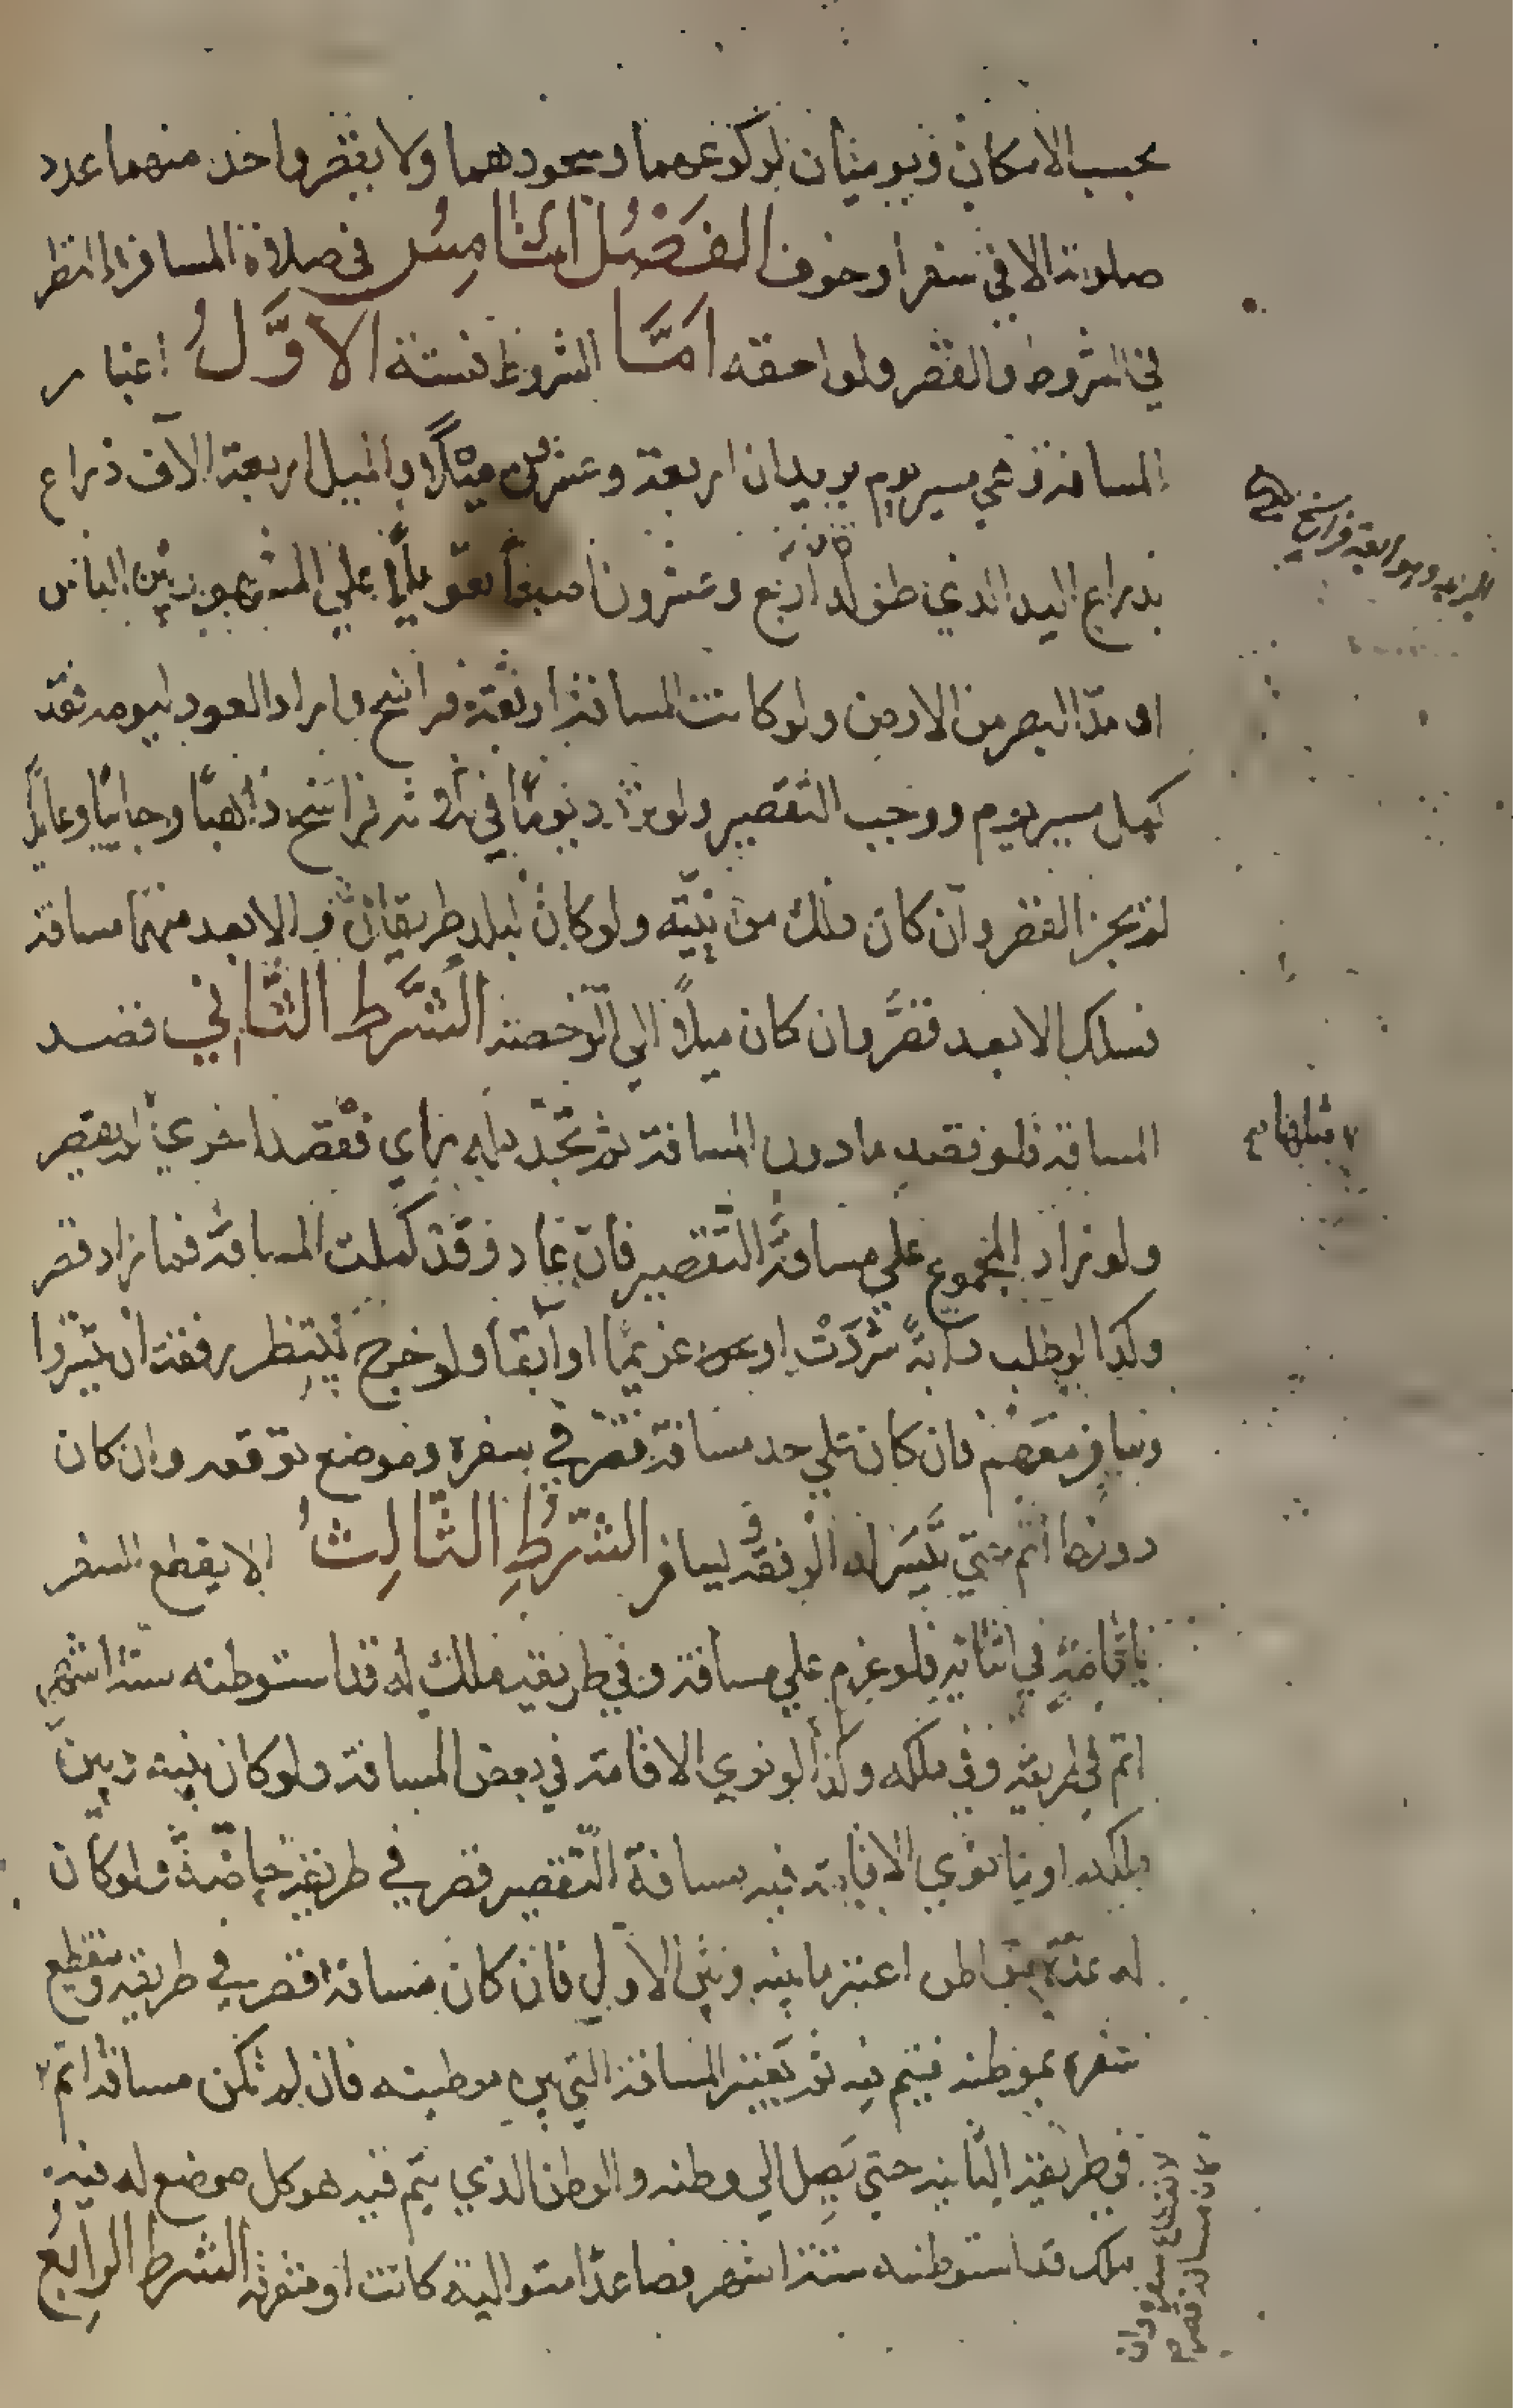 بحسب الامكان ويوميان لركوعهما وسجودهما ولا يقصر واحد منهما عدد
صلوته الا في سفر او خوف الفصل الخامس في صلاة المسافر والنظر
في الشروط والقصر ولواحقه اما الشروط فستة الاول اعتبار
المسافة وهي مسير يوم بريدان اربعة وعشرون ميلا والميل اربعة الآف ذراع
بذراع اليد الذي طوله اربع وعشرون اصبعا تعويلا علي المشهور بين الناس
او مد البصر من الارض ولو كانت المسافة اربعة فراسخ واراد العود ليومه فقد
كمل مسير يوم ووجب التقصير ولو تردد يوما في ثلاثة فراسخ ذاهبا وجائيا وعائدا
لم يجز القصر وان كان ذلك من نيته ولو كان لبلد طريقان والابعد منهما مسافة
فسلك الابعد قصر وان كان ميلا الي الرخصة الشرط الثاني قصد
المسافة فلو قصد ما دون المسافة ثم تجدد له راي فقصد اخري لم يقصر
ولو زاد المجموع علي مسافة التقصير فان عاد وقد كملت المسافة فما زاد قصر
وكذا لو طلب دابة شردت او غريما او آبقا ولو خرج ينتظر رفقة ان تيسروا
وسافر معهم فان كان علي حد مسافة قصر في سفره وموضع توقفه وان كان
دونها اتم حتي تيسر له الرفقة ليسافر الشرط الثالث الا يقطع السفر
باقامة في اثنائه فلو عزم علي مسافة وفي طريقه ملك له قد استوطنه ستة اشهر
اتم في طريقه وفي ملكه وكذا لو نوي الاقامة في بعض المسافة ولو كان بينه وبين
ملكه او ما نوي الاقامة فيه مسافة التقصير قصر في طريقه خاصة ولو كان
له عدة مواطن اعتبر ما بينه وبين الاول فان كان مسافة قصر في طريقه وينقطع
سفره بموطنه فيتم فيه ثم يعتبر المسافة التي بين موطنيه فان لم تكن مسافة اتم
في طريقه الثانية حتي يصل الي وطنه والوطن الذي يتم فيه هو كل موضع له فيه
ملك قد استوطنه ستة اشهر فصاعدا متوالية كانت او متفرقة الشرط الرابع
لانقطاع سفره وان
كان مسافة قصر